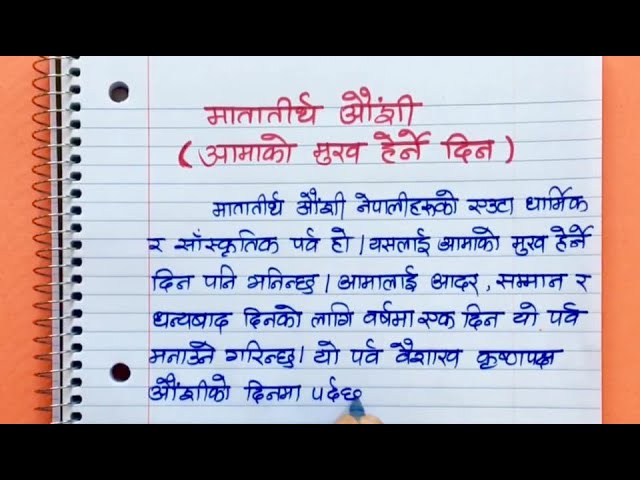 मातातीर्थ औंशी
(आमाको मुख हेर्ने दिन)
मातातीर्थ औंशी नेपालीहरुको एउटा धार्मिक
र साँस्कृतिक पर्व हो। यसलाई आमाको मुख हेर्ने
दिन पनि भनिन्छ। आमालाई आदर, सम्मान र
धन्यबाद दिनको लागि वर्षमा एक दिन यो पर्व
मनाउने गरिन्छ। यो पर्व वैशाख कृष्णपक्ष
औंशीको दिनमा पर्दछ